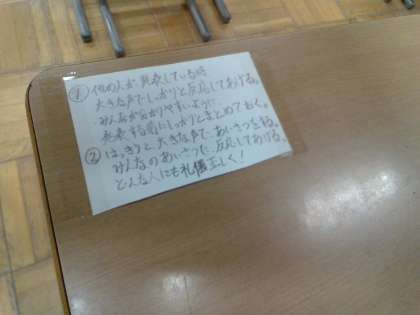 ① 他の人が発表している時
大きな声でしっかりと反応してあげる。
みんなが分かりやすいように、
発表する前にしっかりとまとめておく。
② はっきりと、大きな声で、あいさつをする。
みんなのあいさつに、反応してあげる。
どんな人にも礼儀正しく!